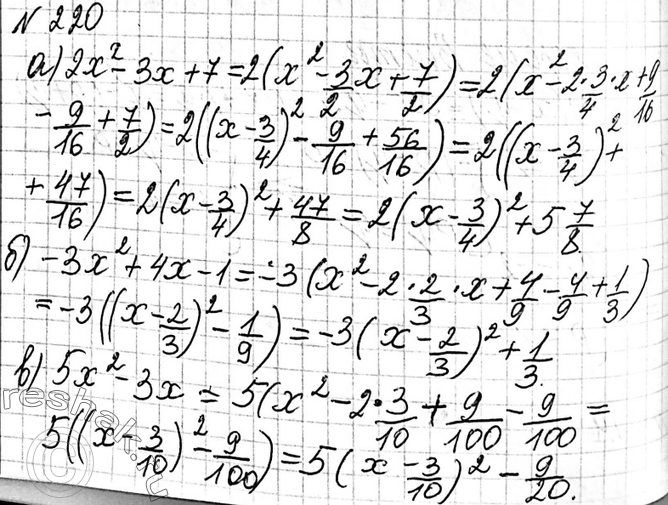 № 220
а) 2x² - 3x + 7 = 2(x² - 3/2 x + 7/2) = 2(x² - 2·3/4·x + 9/16
- 9/16 + 7/2) = 2((x - 3/4)² - 9/16 + 56/16) = 2((x - 3/4)² +
+ 47/16) = 2(x - 3/4)² + 47/8 = 2(x - 3/4)² + 5 7/8.
б) -3x² + 4x - 1 = -3(x² - 2·2/3·x + 4/9 - 4/9 + 1/3)
= -3((x - 2/3)² - 1/9) = -3(x - 2/3)² + 1/3.
в) 5x² - 3x = 5(x² - 2·3/10 + 9/100 - 9/100 =
5((x - 3/10)² - 9/100) = 5(x - 3/10)² - 9/20.